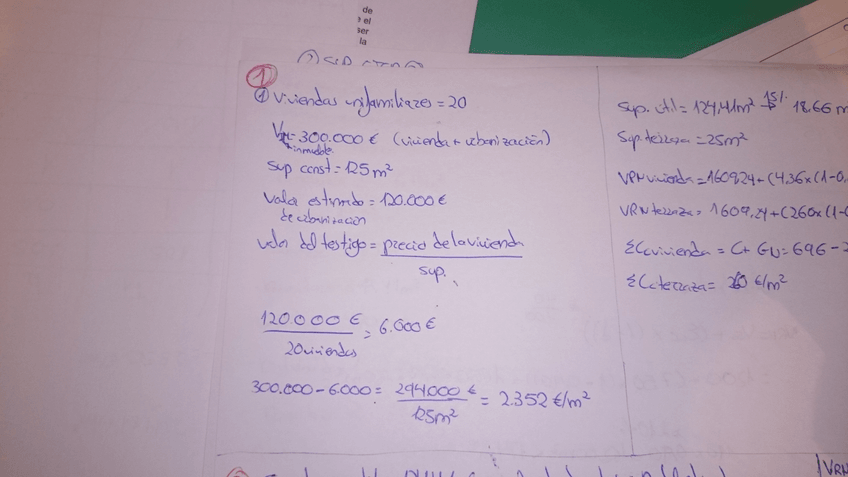 de
o el
ser
la
①
① Viviendas unifamiliares = 20
V inmueble = 300.000 € (vivienda + urbanización)
Sup const = 125 m²
Valor estimado = 120.000 €
de urbanización
valor del testigo = precio de la vivienda
sup.
120.000 €
= 6.000 €
20 viviendas
300.000 - 6.000 = 294000 € = 2.352 €/m²
125m²
Sup. útil = 124,41m² 15% → 18.66 m
Sup. terraza = 25m²
VRN terraza = 1609,24 + (260x(1-0
ΣCc vivienda = C + GU = 696 -
ΣCc terraza = 260 €/m²
VRN